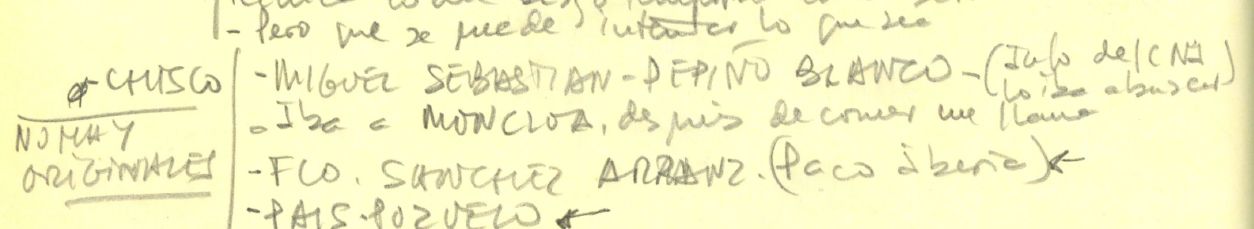 - Pero que se puede intentar lo que sea
- CHUSCO
NO HAY
ORIGINALES
- MIGUEL SEBASTIAN - PEPIÑO BLANCO - (Info del CNI
lo iba a buscar)
- Iba a MONCLOA, después de comer me llama
- FCO. SANCHEZ ARRANZ. (Paco iberia) ←
- PAIS - POZUELO ←